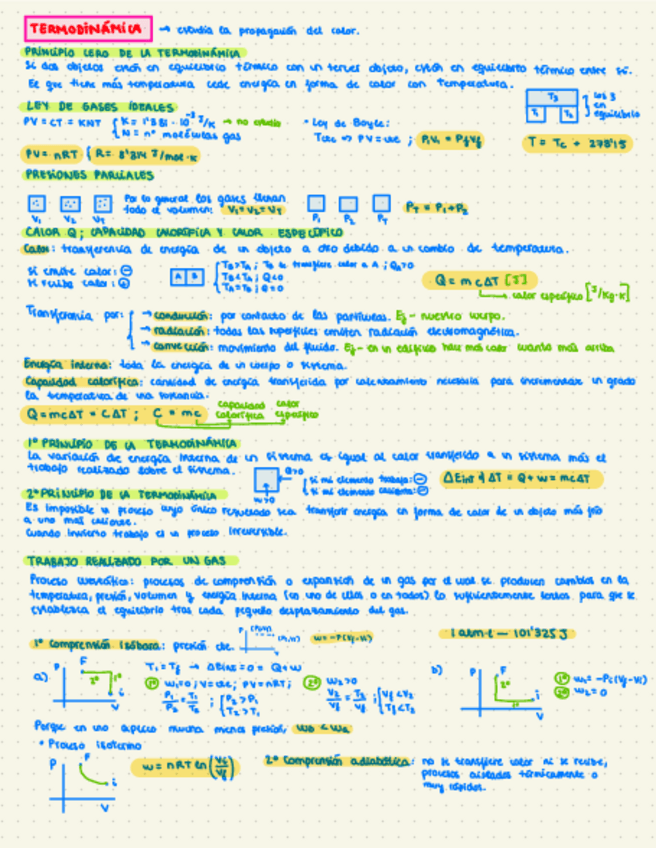 TERMODINÁMICA → estudia la propagación del calor.
PRINCIPIO CERO DE LA TERMODINÁMICA
Si dos objetos están en equilibrio térmico con un tercer objeto, están en equilibrio térmico entre sí.
Ee que tiene más temperatura cede energía en forma de calor con temperatura.
T3
T1 T2
los 3 en equilibrio
LEY DE GASES IDEALES
PV = CT = KNT { K = 1'381 · 10^-23 J/K → no
N = nº moléculas gas
• Ley de Boyle:
Tcte => PV = cte ; P1V1 = PfVf
T = Tc + 273'15
PV = nRT { R = 8'314 J/mol·K
PRESIONES PARCIALES
V1 V2 VT
Por lo general los gases llenan
todo el volumen: V1 = V2 = VT
P1 P2 PT
PT = P1 + P2
CALOR Q; CAPACIDAD CALORÍFICA Y CALOR ESPECÍFICO
Calor: transferencia de energía de un objeto a otro debido a un cambio de temperatura.
Si emite calor: ⊖
Si recibe calor: ⊕
A B
TB>TA ; TB se transfiere calor a A ; QA>0
TB<TA ; Q<0
TA=TB ; Q=0
Q = mcΔT [J]
calor específico [J/kg·K]
Transferencia por:
→ conducción: por contacto de las partículas. Ej- nuestro cuerpo.
→ radiación: todas las superficies emiten radiación electromagnética.
→ convección: movimiento del fluido. Ej- en un edificio hace más calor cuanto más arriba
Energía interna: toda la energía de un cuerpo o sistema.
Capacidad calorífica: cantidad de energía transferida por calentamiento necesaria para incrementar un grado
la temperatura de una sustancia.
Q = mcΔT = CΔT ; C = mc
capacidad calorífica
calor específico
1º PRINCIPIO DE LA TERMODINÁMICA
La variación de energía interna de un sistema es igual al calor transferido a un sistema más el
trabajo realizado sobre el sistema.
Q>0
W>0
Si mi elemento trabaja: ⊖
Si mi elemento calienta: ⊖
Q + W = mcΔT
2º PRINCIPIO DE LA TERMODINÁMICA
Es imposible un proceso cuyo único resultado sea transferir energía en forma de calor de un objeto más frío
a uno más caliente.
Cuando invierto trabajo es un proceso irreversible.
TRABAJO REALIZADO POR UN GAS
procesos de comprensión o expansión de un gas por el cual se producen cambios en la
temperatura, presión, volumen y energía interna (en uno de ellos o en todos) lo suficientemente lentos para que se
establezca el equilibrio tras cada pequeño desplazamiento del gas.
1º Comprensión isóbara: presión cte.
W = -P(Vf-Vi)
1 atm·l — 101'325 J
a)
P F 2º 1º i V
T1 = Tf → ΔEint = 0 = Q + W
① W1=0; V=cte; PV=nRT;
P1/P2 = T1/T2 ; { P2>P1
T2>T1
② W2>0
V2/Vf = T2/Tf ; { Vf<V2
Tf<T2
b)
P F 2º 1º i V
① W1 = -Pi(Vf-Vi)
② W2 = 0
Porque en uno aplico mucha menos presión, Wb < Wa
• Proceso isotermo
P F i V
W = nRT ln(Vi/Vf)
2º Comprensión adiabática: no se transfiere calor ni se recibe,
procesos aislados térmicamente o
muy rápidos.